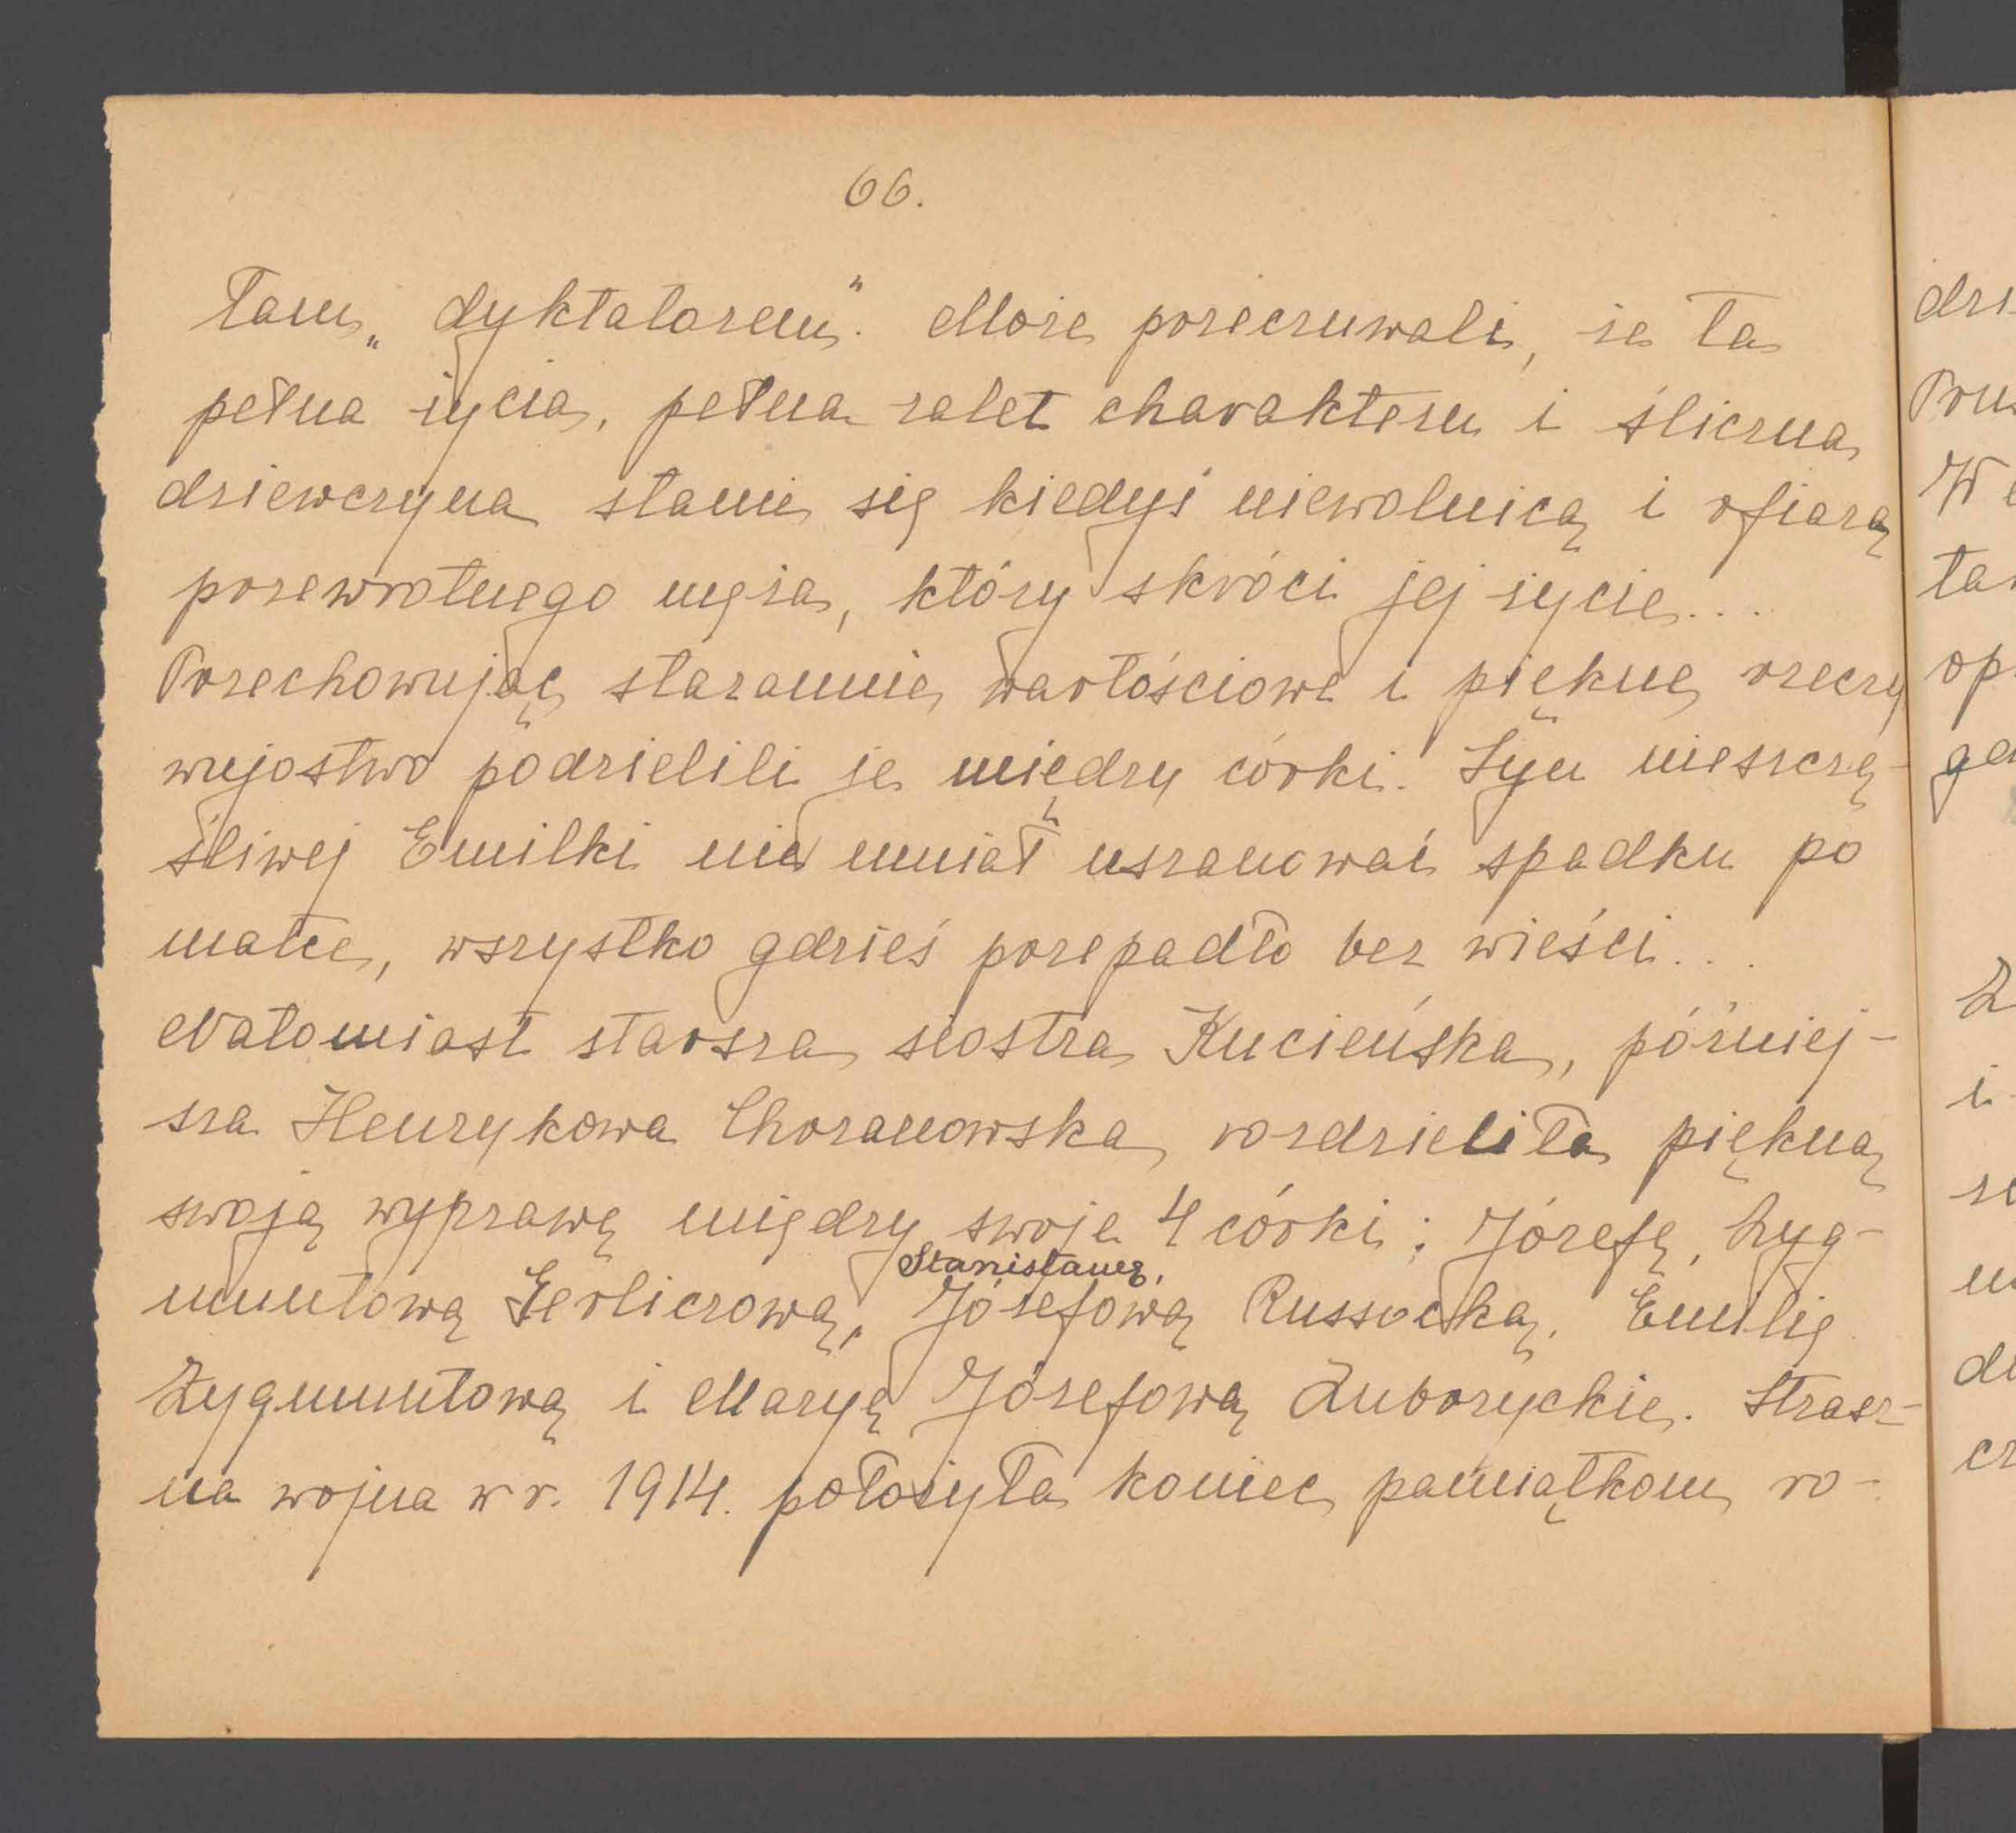 66.
tam „dyktatorem". Może przeczuwali, że ta
pełna życia, pełna zalet charakteru i śliczna
dziewczyna stanie się kiedyś niewolnicą i ofiarą
przewrotnego męża, który skróci jej życie...
Przechowując starannie wartościowe i piękne rzeczy
wujostwo podzielili je między córki. Syn nieszczę-
śliwej Emilki nie umiał uszanować spadku po
matce, wszystko gdzieś przepadło bez wieści...
Natomiast starsza siostra Kucieńska, później-
sza Henrykowa Chrzanowska, rozdzieliła piękną
swoją wyprawę między swoje 4 córki: Józefę, Zyg-
muntową Gerliczową, Stanisławę, Józefową Russocką, Emilię
Zygmuntową i Maryę Józefową Zuborzyckie. Strasz-
na wojna w r. 1914. położyła koniec pamiątkom ro-